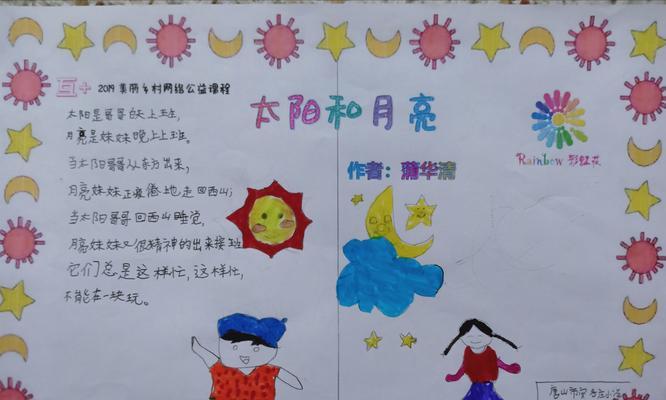 互+ 2019 美丽乡村网络公益课程
太阳和月亮
作者：蒲华清
Rainbow 彩虹花
太阳是哥哥白天上班，
月亮是妹妹晚上上班。
当太阳哥哥从东方出来，
月亮妹妹正疲倦地走回西山；
当太阳哥哥回西山睡觉，
月亮妹妹又很精神的出来接班
它们总是这样忙，这样忙，
不能在一块玩。